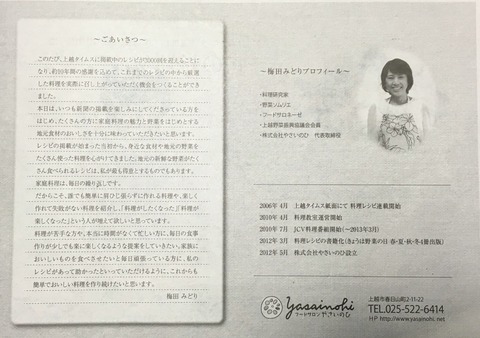 ～ごあいさつ～
このたび、上越タイムスに掲載中のレシピが1000回を迎えることに
なり、約10年間の感謝を込めて、これまでのレシピの中から厳選
した料理を実際に召し上がっていただく機会をつくることができ
ました。
本日は、いつも新聞の掲載を楽しみにしてくださっている方を
はじめ、たくさんの方に家庭料理の魅力と野菜をはじめとする
地元食材のおいしさを十分に味わっていただきたいと思います。
レシピの掲載が始まった当初から、身近な食材や地元の野菜を
たくさん使った料理を心がけてきました。地元の新鮮な野菜がたく
さん食べられるレシピは、私が最も得意とするものでもあります。
家庭料理は、毎日の繰り返しです。
だからこそ、誰でも簡単に肩ひじ張らずに作れる料理や、楽しく
作れて失敗がない料理を紹介し、「料理がしたくなった」「料理が
楽しくなった」という人が増えて欲しいと思っています。
料理が苦手な方や、本当に時間がなくて忙しい方に、毎日の食事
作りが少しでも楽に楽しくなるような提案をしていきたい。家族に
おいしいものを食べさせたいと毎日頑張っている方に、私の
レシピがあって助かったといっていただけるように、これからも
簡単でおいしい料理を作り続けたいと思います。
梅田 みどり
～梅田みどりプロフィール～
・料理研究家
・野菜ソムリエ
・フードサロネーゼ
・上越野菜振興協議会会員
・株式会社やさいのひ 代表取締役
2006年 4月 上越タイムス紙面にて 料理レシピ連載開始
2010年 4月 料理教室運営開始
2010年 7月 JCV料理番組開始(～2013年3月)
2012年 3月 料理レシピの書籍化(きょうは野菜の日 春・夏・秋・冬 4冊出版)
2012年 5月 株式会社やさいのひ設立
yasainohi
フードサロン やさいのひ
上越市春日山町2-11-22
TEL.025-522-6414
HP http://www.yasainohi.net